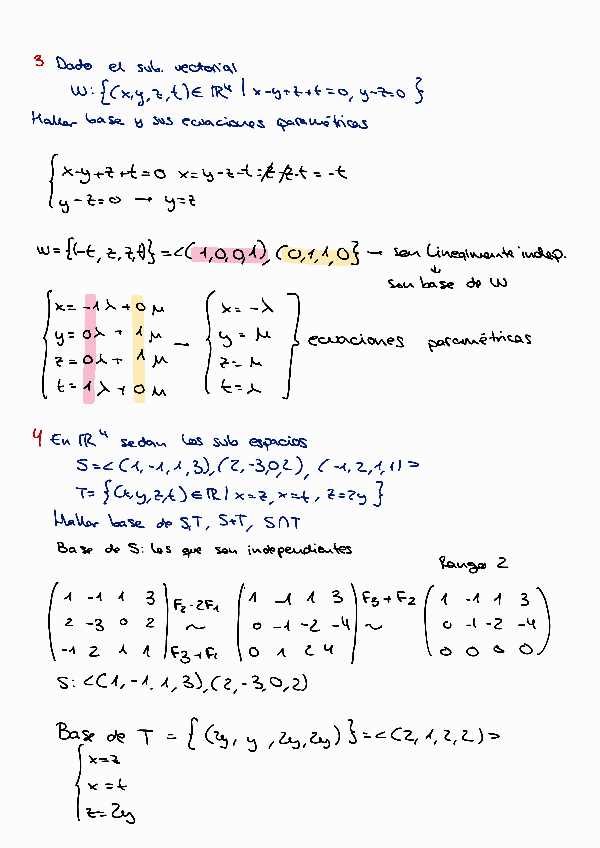 3 Dado el sub. vectorial
W: {(x,y,z,t) ∈ ℝ⁴ | x-y+z+t=0, y-z=0 }
Hallar base y sus ecuaciones paramétricas
x-y+z+t=0 x=y-z-t = z̸-z̸-t = -t
y-z=0 → y=z
W={(-t, z, z, t)} = <(1,0,0,1), (0,1,1,0} → son linealmente indep.
↓
son base de W
x= -1λ + 0μ x= -λ
y= 0λ + 1μ → y= μ ecuaciones paramétricas
z= 0λ + 1μ z= μ
t= 1λ + 0μ t= λ
4 En ℝ⁴ sedan los sub espacios
S=<(1,-1,1,3),(2,-3,0,2), (-1,2,1,1)>
T= {(x,y,z,t) ∈ ℝ | x=z, x=t, z=2y }
Hallar base de S,T, S+T, S∩T
Base de S: los que son independientes
Rango 2
1 -1 1 3 F2-2F1 1 -1 1 3 F3+F2 1 -1 1 3
2 -3 0 2 ~ 0 -1 -2 -4 ~ 0 -1 -2 -4
-1 2 1 1 F3+F1 0 1 2 4 0 0 0 0
S: <(1,-1,1,3),(2,-3,0,2)
Base de T = { (2y, y, 2y, 2y) } = <(2,1,2,2)>
x=z
x=t
z=2y